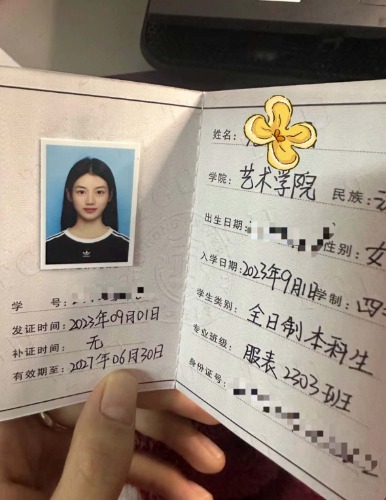 学 号:
发证时间:2023年09月01日
补证时间: 无
有效期至:2027年06月30日
姓名:
学院: 艺术学院 民族:
出生日期: 性别: 女
入学日期:2023年9月1日学制: 四
学生类别: 全日制本科生
专业班级: 服表2303班
身份证号: